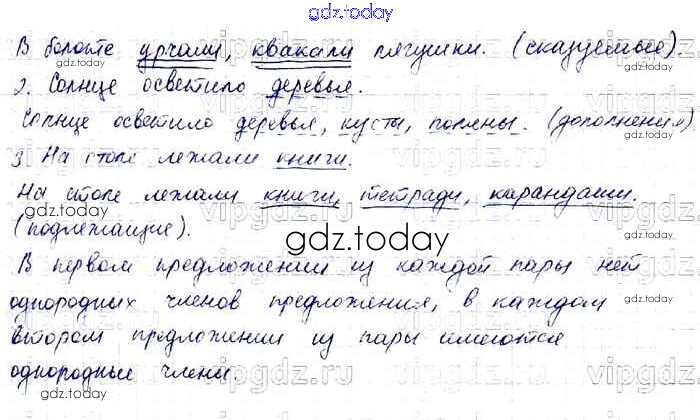 gdz.today
В болоте урчали, квакали лягушки. (сказуемые).
2. Солнце осветило деревья.
Солнце осветило деревья, кусты, поляны. (дополнения)
3. На столе лежали книги.
На столе лежали книги, тетради, карандаши.
(подлежащие).
В первом предложении из каждой пары нет
однородных членов предложения, в каждом
втором предложении из пары имеются
однородные члены.
gdz.today
gdz.today
gdz.today
gdz.today
gdz.today
gdz.today
gdz.today
vipgdz.ru
vipgdz.ru
vipgdz.ru
vipgdz.ru